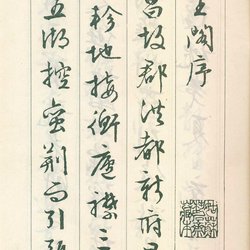 王閣序
昌故郡洪都新府星
軫地接衡廬襟三
五湖控蠻荊而引甌